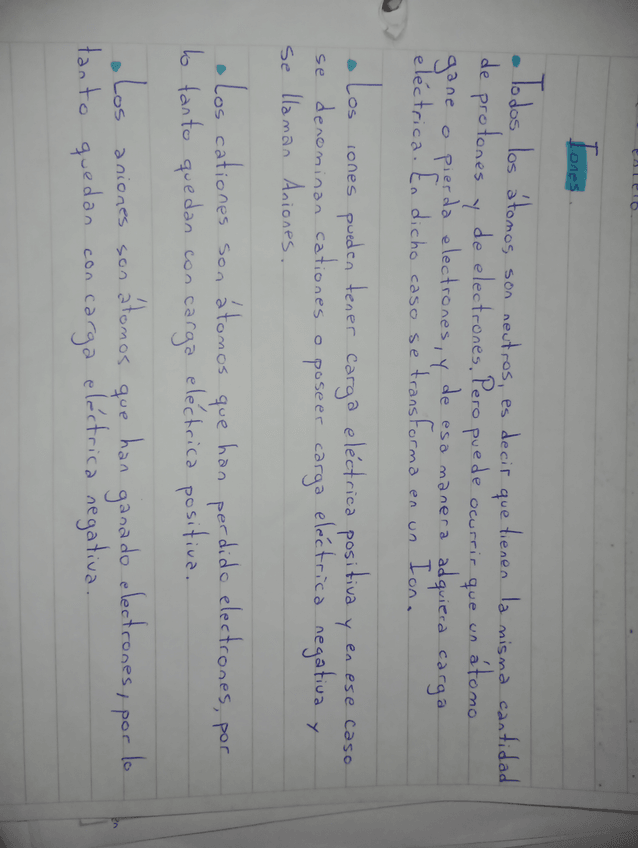 Iones.
• Todos los átomos, son neutros, es decir que tienen la misma cantidad
de protones y de electrones. Pero puede ocurrir que un átomo
gane o pierda electrones, y de esa manera adquiera carga
eléctrica. En dicho caso se transforma en un Ion.
• Los iones pueden tener carga eléctrica positiva y en ese caso
se denominan cationes o poseer carga eléctrica negativa y
se llaman Aniones.
• Los cationes son átomos que han perdido electrones, por
lo tanto quedan con carga eléctrica positiva.
• Los aniones son átomos que han ganado electrones, por lo
tanto quedan con carga eléctrica negativa.